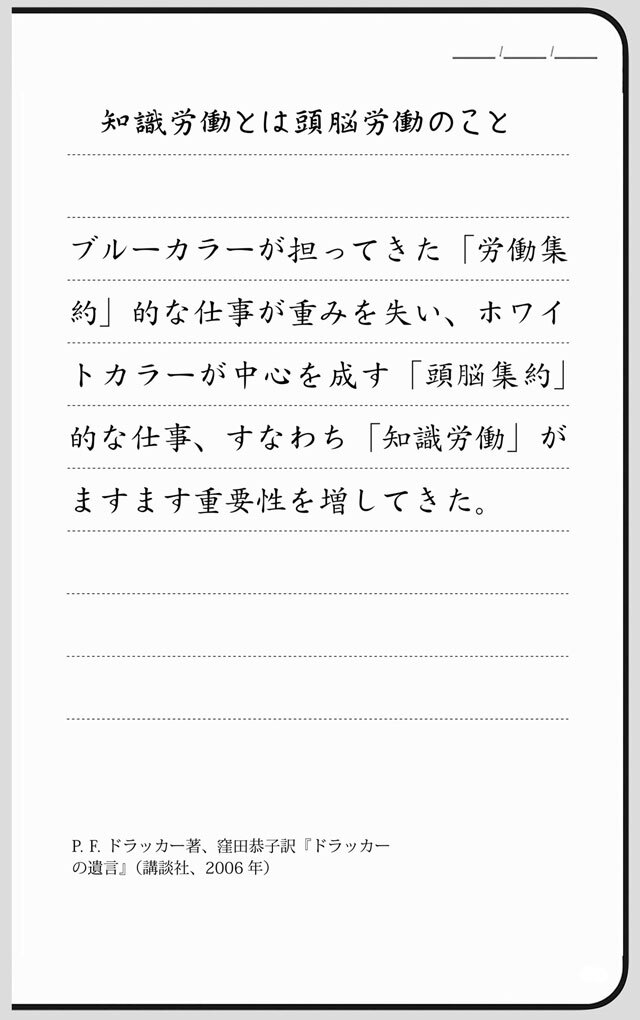 ／／
知識労働とは頭脳労働のこと
ブルーカラーが担ってきた「労働集
約」的な仕事が重みを失い、ホワイ
トカラーが中心を成す「頭脳集約」
的な仕事、すなわち「知識労働」が
ますます重要性を増してきた。
P. F. ドラッカー著、窪田恭子訳『ドラッカー
の遺言』（講談社、2006 年）